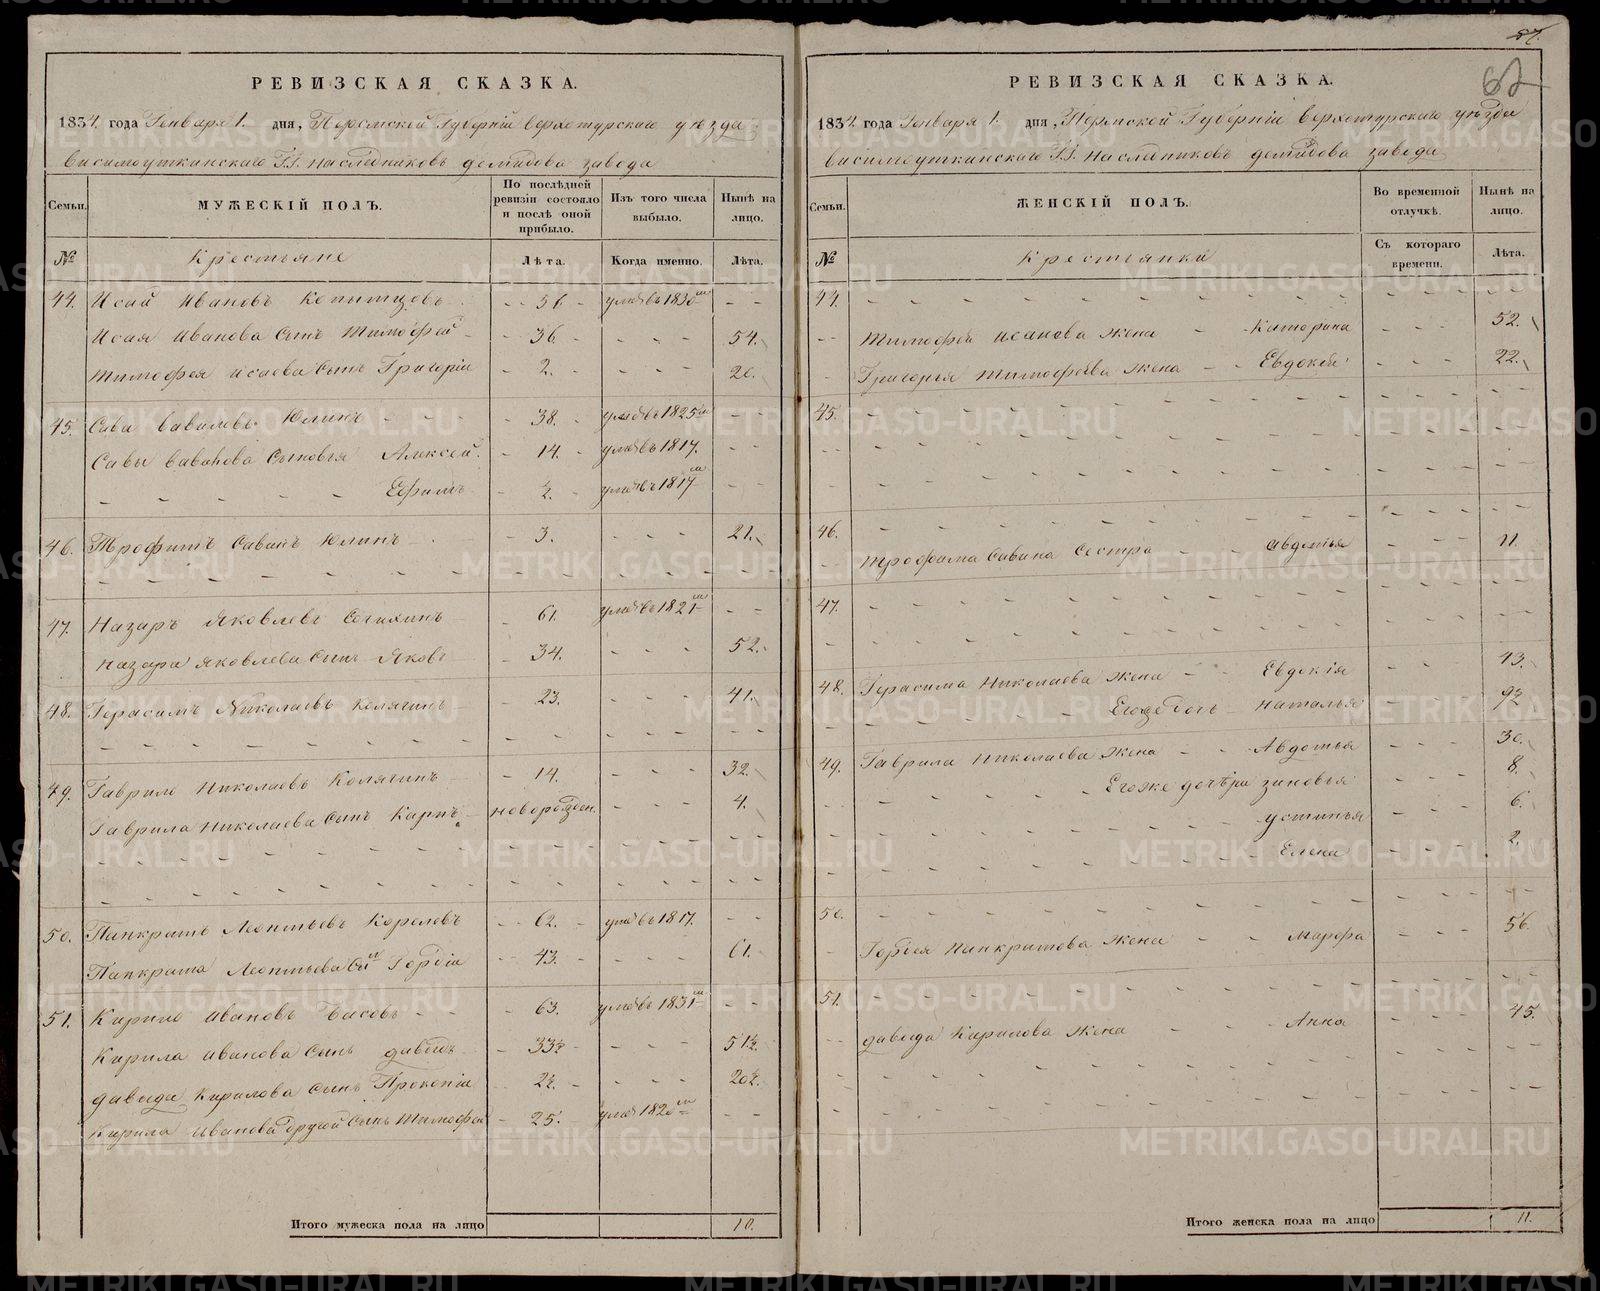 87.
62
РЕВИЗСКАЯ СКАЗКА.
1834. года Генваря 1. дня, Пермской Губерніи верхотурскаго уѣзда
висимоуткинскаго Г.Г. наслѣдниковъ демидова завода
Семьи.
МУЖЕСКІЙ ПОЛЪ.
По послѣдней ревизіи состояло и послѣ оной прибыло.
Изъ того числа выбыло.
Нынѣ на лицо.
№
Крестьяне
Лѣта.
Когда именно.
Лѣта.
44. Исай Ивановъ Копытцовъ - - 51. - умеръ въ 1830 м - -
Исая Иванова Сынъ Тимофей - - 36. - - - 54.
Тимофея Исаева Сынъ Григорій - 2. - - - - 20.
45. Сава вавиловъ Юлинъ - - - - 38. умеръ въ 1825 м - -
Савы вавилова Сыновья Алексей. - 14. - умеръ въ 1817. - -
- - - - - Ефимъ - ½. - умеръ въ 1817 м - -
46. Трофимъ Савинъ Юлинъ - - 3. - - - 21.
47. Назаръ Яковлевъ Сочихинъ - 61. умеръ въ 1821 м - -
Назара Яковлева Сынъ Яковъ - 34. - - - 52.
48. Герасимъ Николаевъ Колягинъ - 23. - - - 41.
49. Гаврило Николаевъ Колягинъ - 14. - - - 32.
Гаврила Николаева Сынъ Карпъ новорожден. - - - 4.
50. Панкратъ Леонтьевъ Королевъ - 62. - умеръ въ 1817. - -
Панкрата Леонтьева Сынъ Гордій - 43. - - - 61.
51. Кирило Ивановъ Басовъ - - - 63. умеръ въ 1831 м - -
Кирила Иванова Сынъ давыдъ - 33½ - - - 51½.
давыда Кирилова Сынъ Прокопій - 2½. - - - - 20½.
Кирила Иванова другой Сынъ Тимофей - 25. умеръ 1820 м - -
Итого мужеска пола на лицо 10.
РЕВИЗСКАЯ СКАЗКА.
1834. года Генваря 1. дня, Пермской Губерніи верхотурскаго уѣзда
висимоуткинскаго Г.Г. наслѣдниковъ демидова завода
Семьи.
ЖЕНСКІЙ ПОЛЪ.
Во временной отлучкѣ.
Нынѣ на лицо.
№
Крестьянки
Съ котораго времени.
Лѣта.
44.
Тимофея Исакова Жена - Катерина - - - 52.
Григорья Тимофеева Жена - - Евдокея - - - 22.
45.
46.
Трофима Савина Сестра - - Авдотья - - - 21.
47.
48. Герасима Николаева Жена - - Евдокія - - 43.
Егоже дочь Наталья - - 9½
49. Гаврила Николаева Жена - - Авдотья - - - 30.
Егоже дочери зиновья - - - 8.
устинья - - - 6.
Елена - - - 2.
50.
Гордея Панкратова Жена - - Марфа - - - 56.
51.
давыда Кирилова Жена - - Анна - - - 45.
Итого женска пола на лицо 11.
METRIKI.GASO-URAL.RU